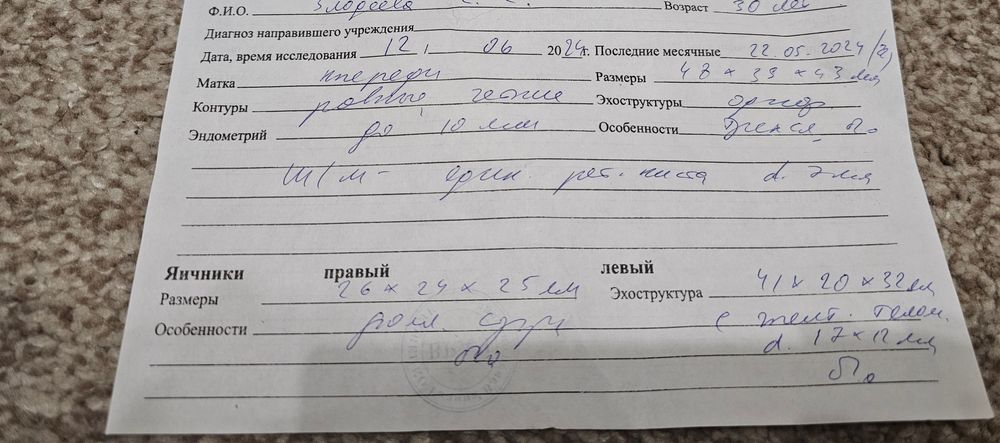 Ф.И.О. Возраст 30 лет
Диагноз направившего учреждения
Дата, время исследования 12. 06 2024г. Последние месячные 22.05.2024
Матка кпереди Размеры 48 × 39 × 43 мм
Контуры ровные четкие Эхоструктуры однор
Эндометрий до 10 мм Особенности
Ш/м - един. рет. киста d. 7 мм
Яичники правый левый
Размеры 26 × 24 × 25 мм Эхоструктура 41 × 20 × 32 мм
Особенности фолл с желт. телом.
d. 17 × 12 мм